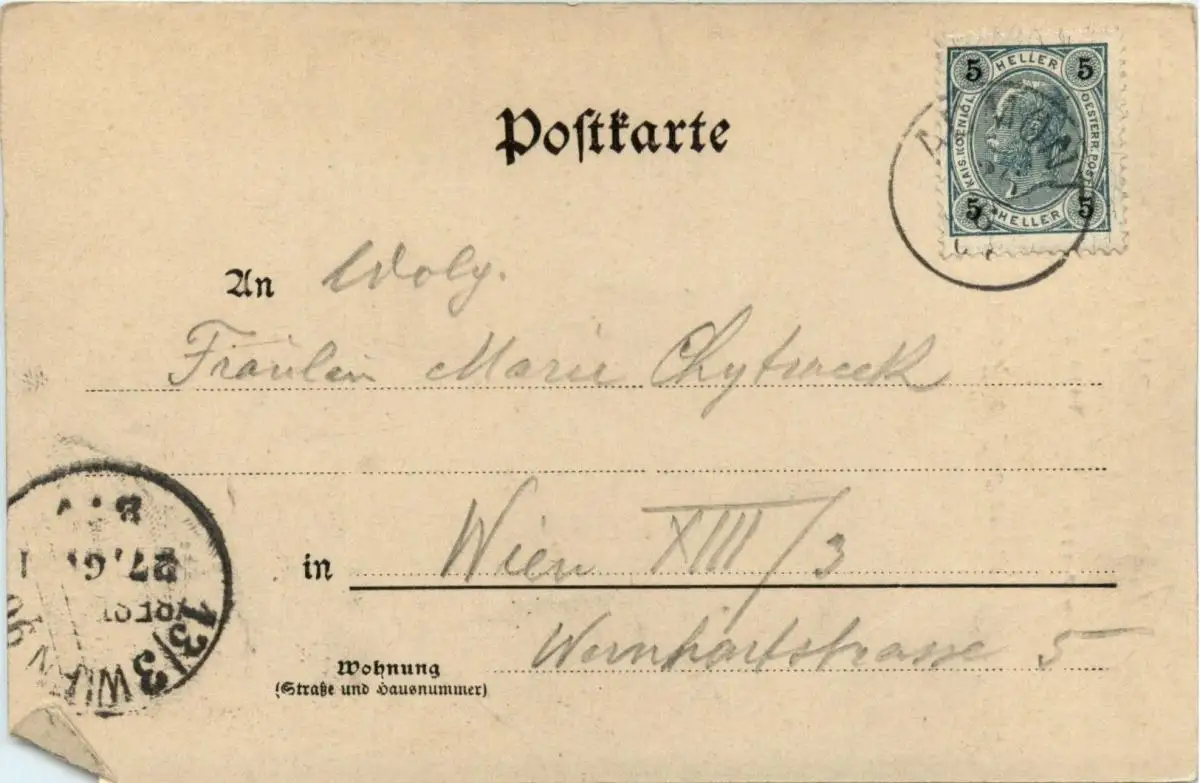 Postkarte
5 HELLER 5
KAIS. KOENIGL.
OESTERR. POST
5 HELLER 5
An Wolg.
Fräulein Marie Chytracek
in Wien XIII/3
Wohnung Wernhartstrasse 5
(Straße und Hausnummer)
27.6
13/3 WIEN